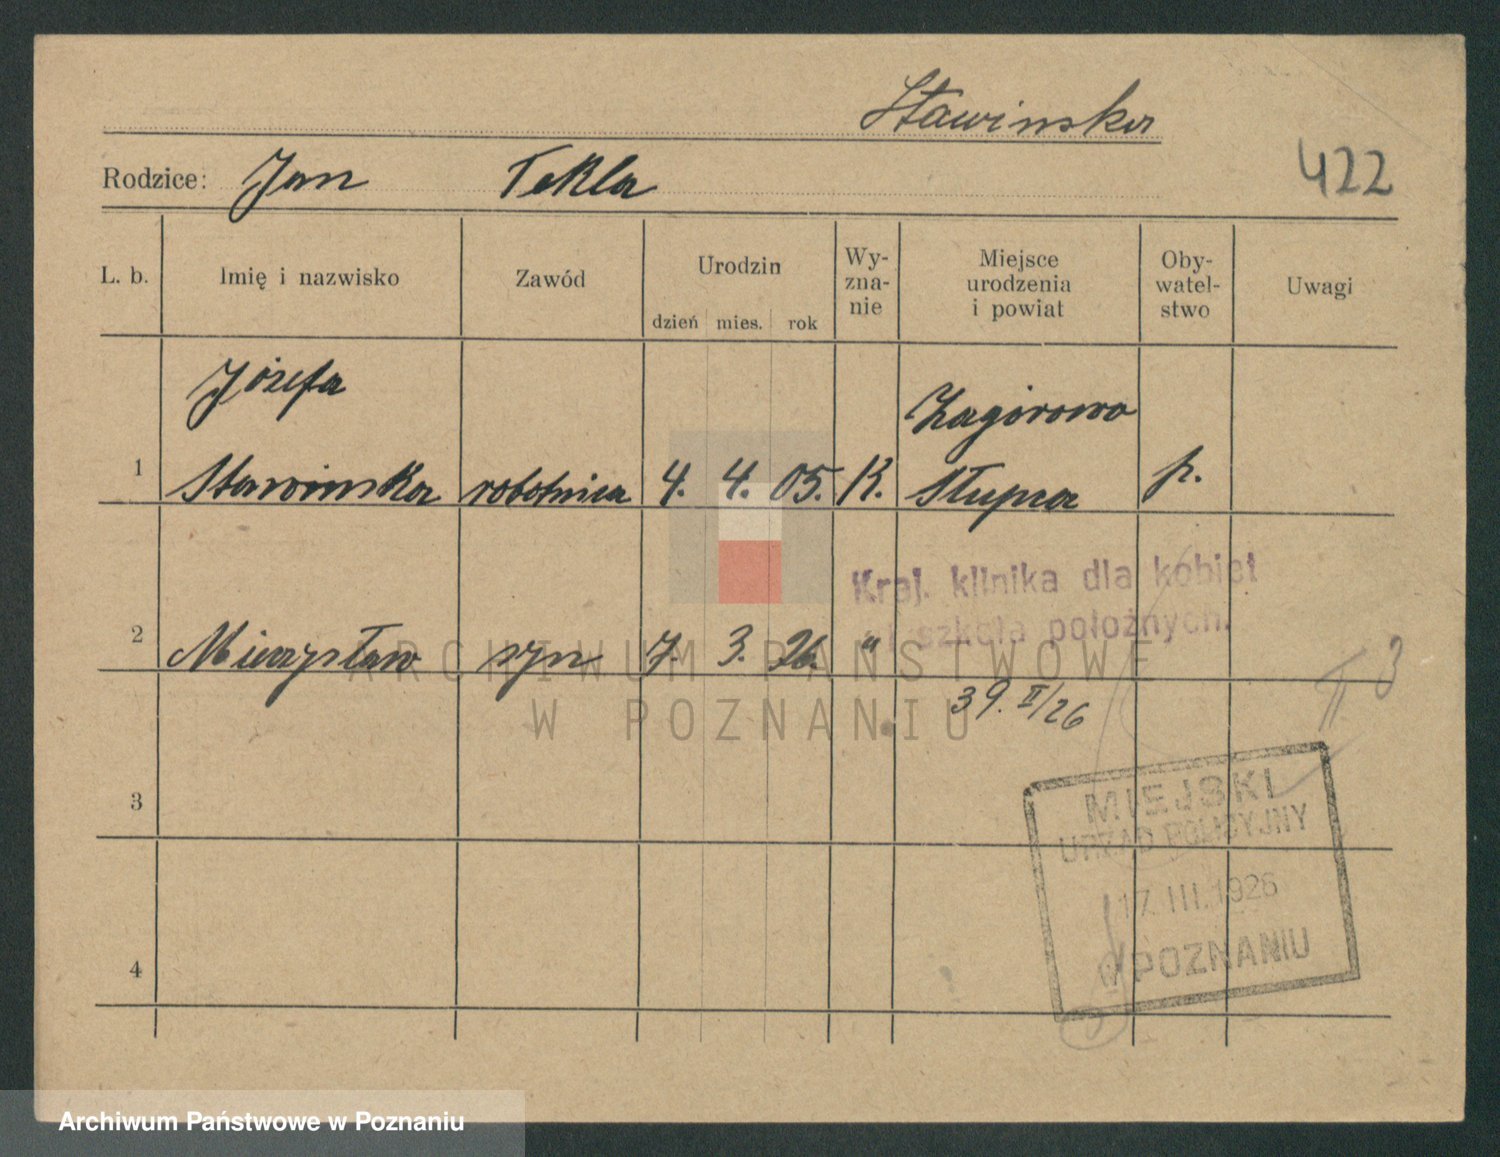 Stawinska
422
Rodzice: Jan Tekla
L. b.
Imię i nazwisko
Zawód
Urodzin
dzień mies. rok
Wy-
zna-
nie
Miejsce
urodzenia
i powiat
Oby-
watel-
stwo
Uwagi
Józefa
Zagórowo
1 Stawinska robotnica 4. 4. 05. K. Słupca p.
Kraj. klinika dla kobiet
i szkoła położnych.
2 Mieczysław syn 7. 3. 26. "
39. II/26
3
MIEJSKI
URZĄD POLICYJNY
17. III. 1926
w POZNANIU
3
4
ARCHIWUM PAŃSTWOWE
W POZNANIU
Archiwum Państwowe w Poznaniu